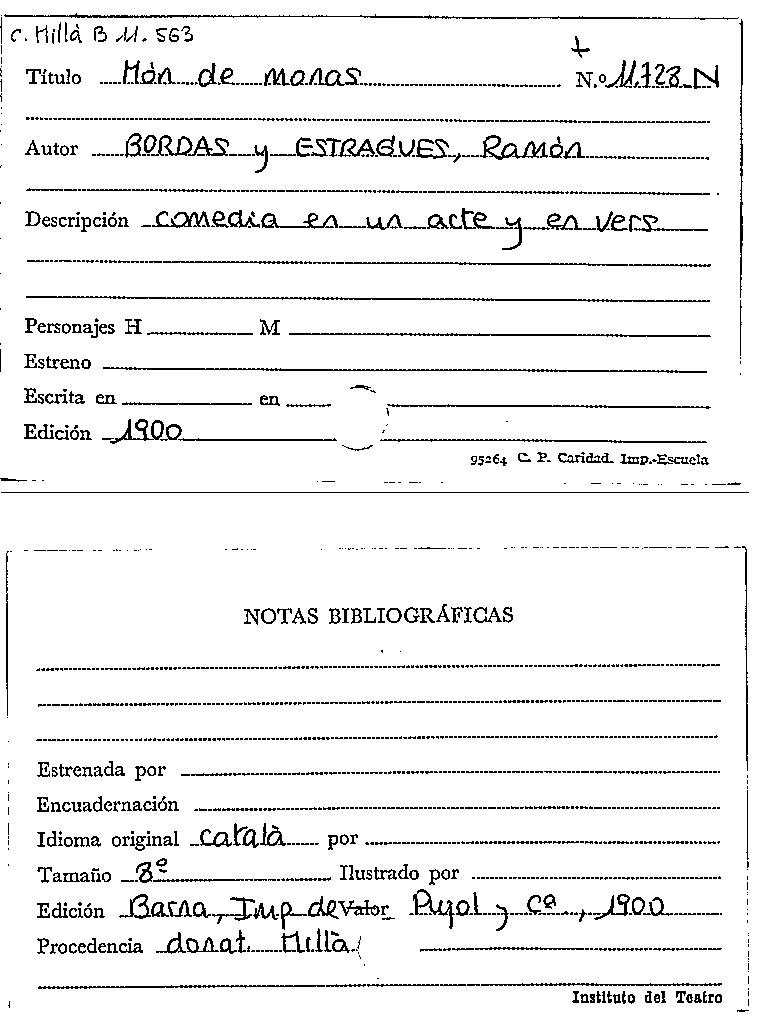 C. Millà B 11. 563
+
Título Món de monas N.º 11.728-N
Autor BORDAS y ESTRAGUES, Ramón
Descripción comedia en un acte y en vers
Personajes H M
Estreno
Escrita en en
Edición 1900
95264 C. P. Caridad. Imp.-Escuela
NOTAS BIBLIOGRÁFICAS
Estrenada por
Encuadernación
Idioma original català por
Tamaño 8º
Ilustrado por
Edición Barna, Imp de Valor Pujol y Cª, 1900
Procedencia donat. Millà
Instituto del Teatro